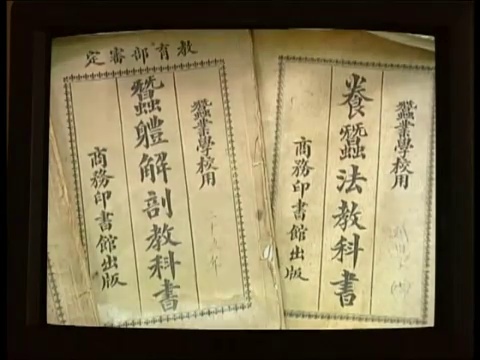 教育部審定
蠶業學校用
蠶體解剖教科書
商務印書館出版
蠶業學校用
養蠶法教科書
商務印書館出版